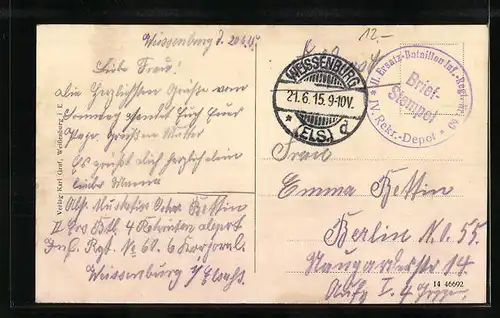 Weissenburg d. 20.6.15
Liebe Frau!
Die herzlichsten Grüsse vom
sendet Euch Euer
Papa Grüssen Mutter
Es grüsst dich herzlich dein
lieber Mann
Abs. Musketier Oskar Bettin
II Ers Btl. 4 Rekruten depot
Inf. Rgt. No 60. 6 Korporal.
Weissenburg i/ Elsass
Verlag Karl Graf, Weißenburg i. E.
12-
Feldpost
WEISSENBURG
21.6.15.9-10V.
* (ELS.) d
II. Ersatz-Bataillon Inf.-Regiment 60
Brief-
Stempel
* IV. Rekr.-Depot *
Frau
Emma Bettin
Berlin N.O. 55.
Naugarderstr 14.
Aufg I. 4 Treppen
14 46692